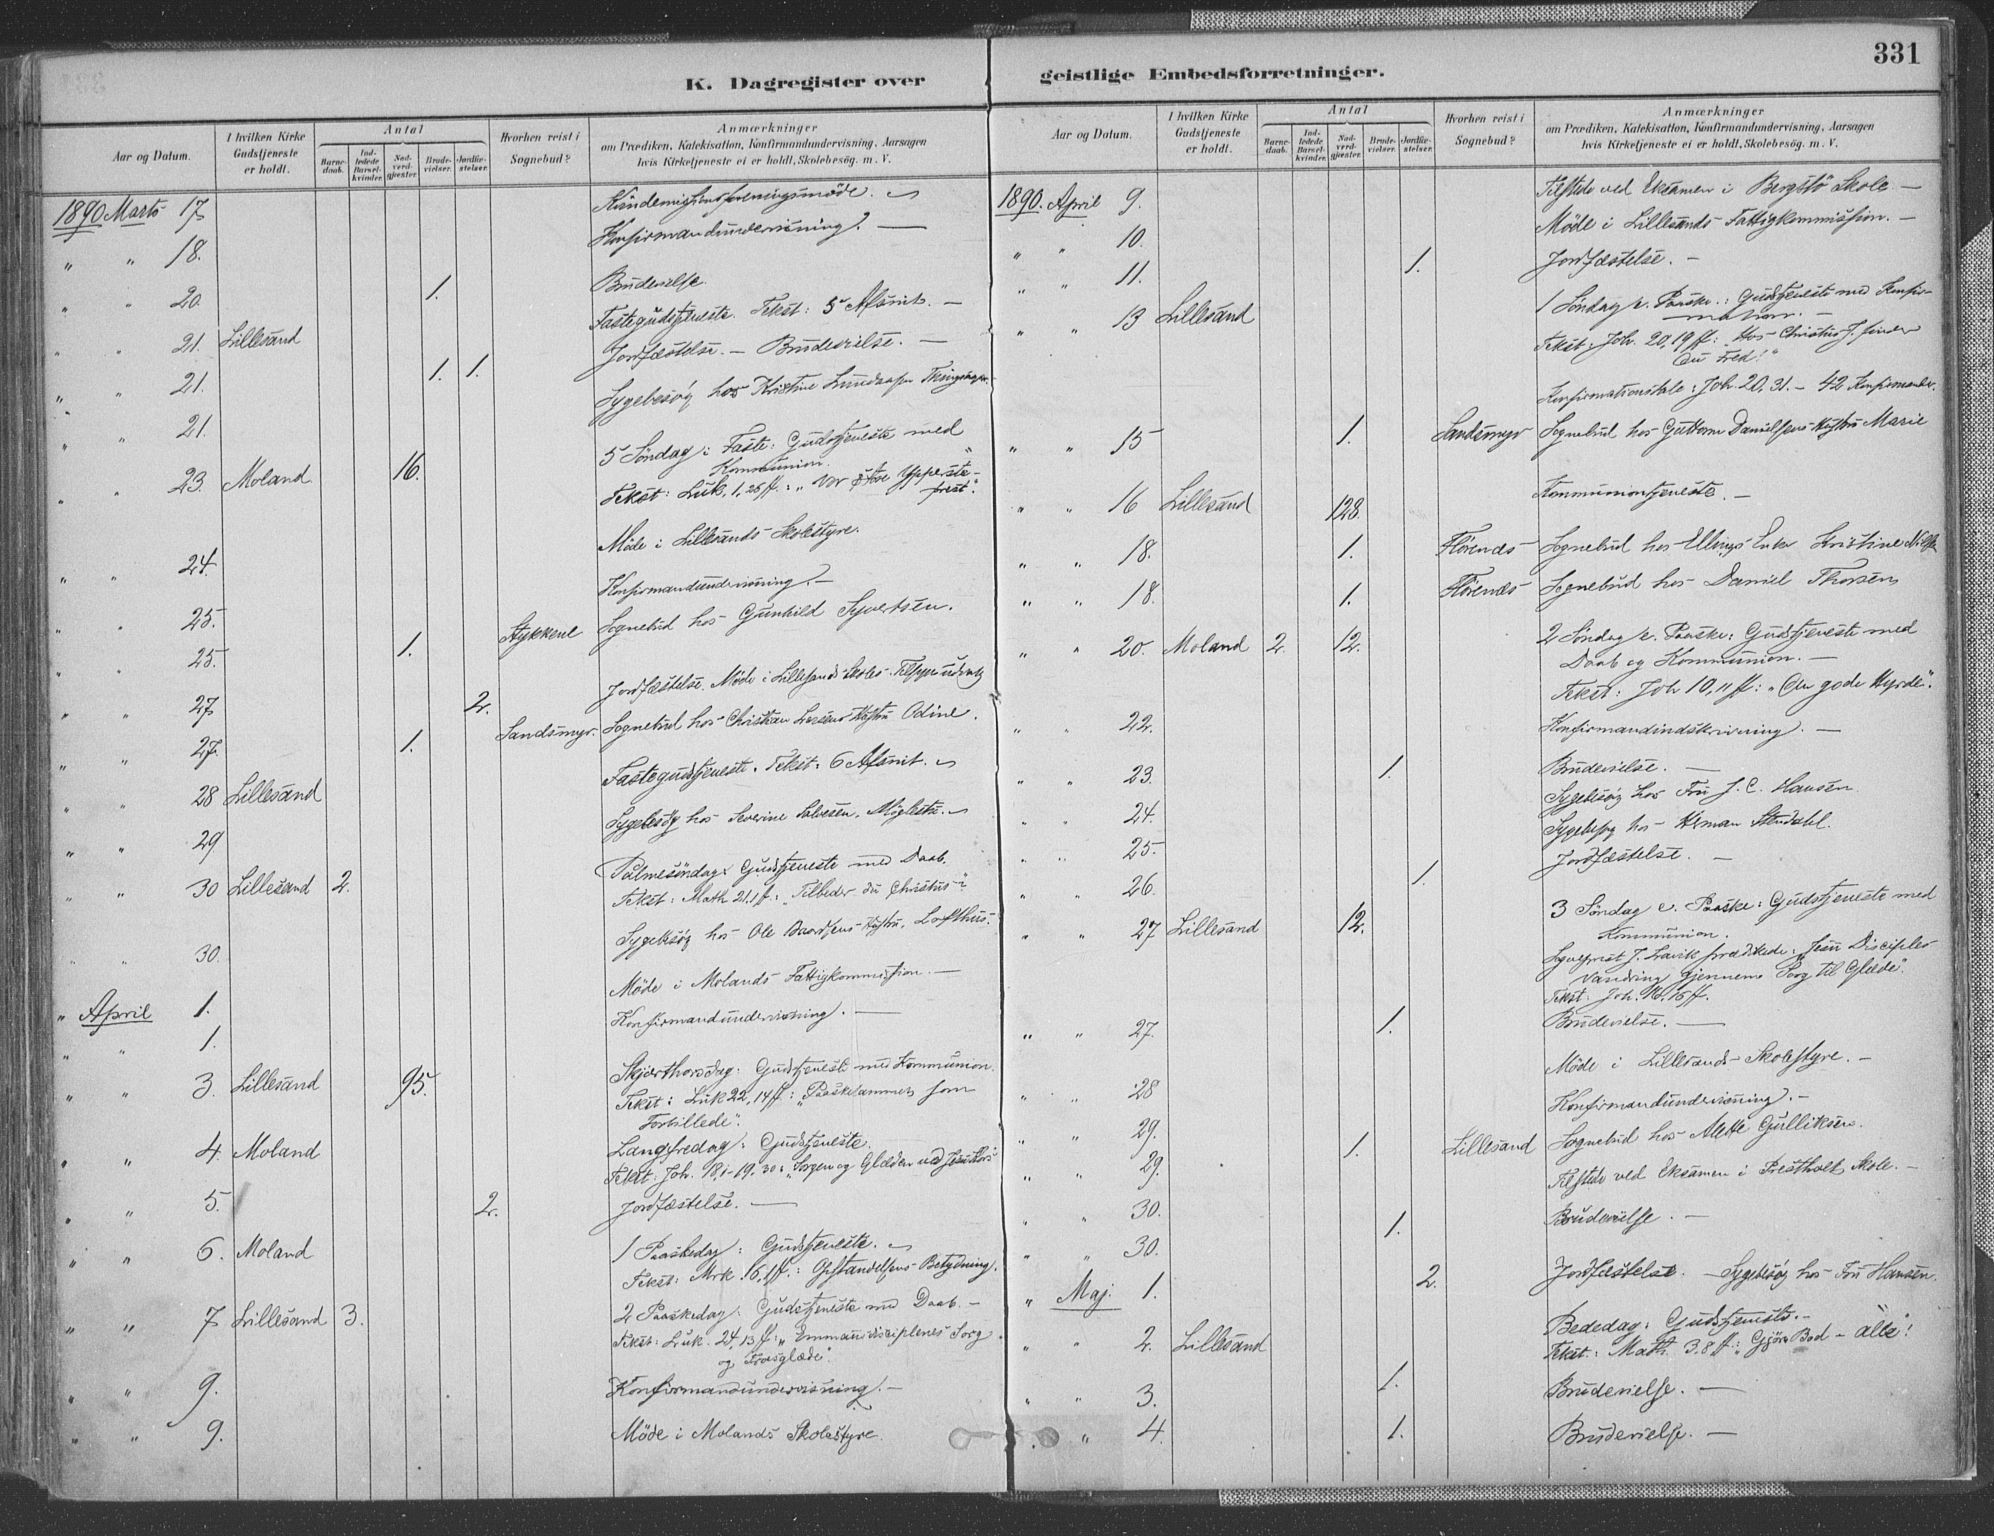 331
K. Dagregister over geistlige Embedsforretninger.
Aar og Datum.
I hvilken Kirke Gudstjeneste er holdt.
Antal
Barne-daab.
Ind-ledede Barsel-kvinder.
Nad-verd-gjæster.
Brude-vielser.
Jordfæ-stelser.
Hvorhen reist i Sognebud?
Anmærkninger
om Prædiken, Katekisation, Konfirmandundervisning, Aarsagen
hvis Kirketjeneste ei er holdt, Skolebesög. m. V.
1890 Marts 17
Konfirmandundervisning. —
" " 18.
" " 20. 1. Brudevielse.
" " 21. Lillesand Fastegudstjeneste. Tekst: 5 Afsnit. —
" " 21. 1. 1. Jordfæstelse. — Brudevielse. —
" " 21. Sygebesøg hos Kristine
" " 23. Moland 16. 5 Søndag i Faste: Gudstjeneste med
Kommunion.
Tekst: Luk. 1, 26 ff.: "Vor Ypperste-
prest".
" " 24. Møde i Lillesands Skolestyre.
" " 25. Konfirmandundervisning. —
" " 25. 1. Stykkene Sognebud hos Gunhild Syvertsen.
" " 27 2. Jordfæstelse. Møde i Lillesands Skoles Tilsynsudvalg
" " 27. 1. Sandsmyr. Sognebud hos Christian Hustru Odine.
" " 28 Lillesand Fastegudstjeneste. Tekst: 6 Afsnit.
" " 29 Sygebesøg hos Severine Salvesen,
" " 30 Lillesand 2. Palmesøndag: Gudstjeneste med Daab.
Tekst: Math 21.1 ff.: "Tilbeder du Christus"?
" " 30 Sygebesøg hos Ole Hustru, Lofthus.
" April 1. Møde i Molands Fattigkommission. —
" " 1. Konfirmandundervisning. —
" " 3. Lillesand 95. Skjærthorsdag: Gudstjeneste med Kommunion.
Tekst: Luk 22, 14 ff.: "Paaskelammet som
Forbillede".
" " 4. Moland Langfredag: Gudstjeneste.
Tekst: Joh. 18,1-19,30: "Sorgen og Glæden ved Jesu Kors"
" " 5. 2. Jordfæstelse. —
" " 6. Moland 1 Paaskedag: Gudstjeneste.
Tekst: Mrk. 16,1 ff.: Opstandelsens Betydning.
" " 7 Lillesand 3. 2 Paaskedag: Gudstjeneste med Daab. —
Tekst: Luk. 24,13 ff.: "Emmausdisciplenes Sorg
og
" " 9. Konfirmandundervisning. —
" " 9. Møde i Molands Skolestyre.
Aar og Datum.
I hvilken Kirke Gudstjeneste er holdt.
Antal
Barne-daab.
Ind-ledede Barsel-kvinder.
Nad-verd-gjæster.
Brude-vielser.
Jordfæ-stelser.
Hvorhen reist i Sognebud?
Anmærkninger
om Prædiken, Katekisation, Konfirmandundervisning, Aarsagen
hvis Kirketjeneste ei er holdt, Skolebesög. m. V.
1890. April 9. Tilstede ved Eksamen i Bergstø Skole —
" " 10. Møde i Lillesands Fattigkommission. —
" " 11. 1. Jordfæstelse. —
" " 13 Lillesand 1 Søndag e. Paaske: Gudstjeneste med Konfir-
mation. —
Tekst: Joh. 20,19 ff: "Hos Christus finder
Du Fred!"
Konfirmationstale: Joh 20,31. — 42 Konfirmander.
" " 15 1. Sandsmyr Sognebud hos Guttorm Danielsens Hustru Marie
" " 16 Lillesand 128. Kommuniontjeneste. —
" " 18. 1. Flørenes Sognebud hos Ellings Enke Kristine
" " 18. 1. Flørenes Sognebud hos Daniel Thorsen
" " 20. Moland 2. 12. 2 Søndag e. Paaske: Gudstjeneste med
Daab og Kommunion. —
Tekst: Joh 10,11 ff: "Den gode Hyrde".
" " 22. Konfirmandindskrivning. —
" " 23. 1. Brudevielse. —
" " 24. Sygebesøg hos Fru J. C. Hansen
" " 25. Sygebesøg hos Herman
" " 26. 1. Jordfæstelse. —
" " 27 Lillesand 12. 3 Søndag e. Paaske: Gudstjeneste med
Kommunion.
Sogneprest J. Lavik prædikede: "Jesu Disciples
Vandring gjennem Sorg til Glæde".
Tekst: Joh. 16, 16 ff.
" " 27. 1. Brudevielse. —
" " 28 Møde i Lillesands Skolestyre. —
" " 29. Konfirmandundervisning. —
" " 29. 1. Lillesand Sognebud hos Alette Gulliksen.
" " 30. Tilstede ved Eksamen i Prestholt Skole. —
" " 30. 1. Brudevielse. —
" Maj 1. 2. Jordfæstelse. — Sygebesøg hos Fru Hansen.
" " 2. Lillesand Bededag: Gudstjeneste. —
Tekst: Math. 3.8 ff: "Gjører Bod — alle!
" " 3. 1. Brudevielse. —
" " 4. 1. Brudevielse. —